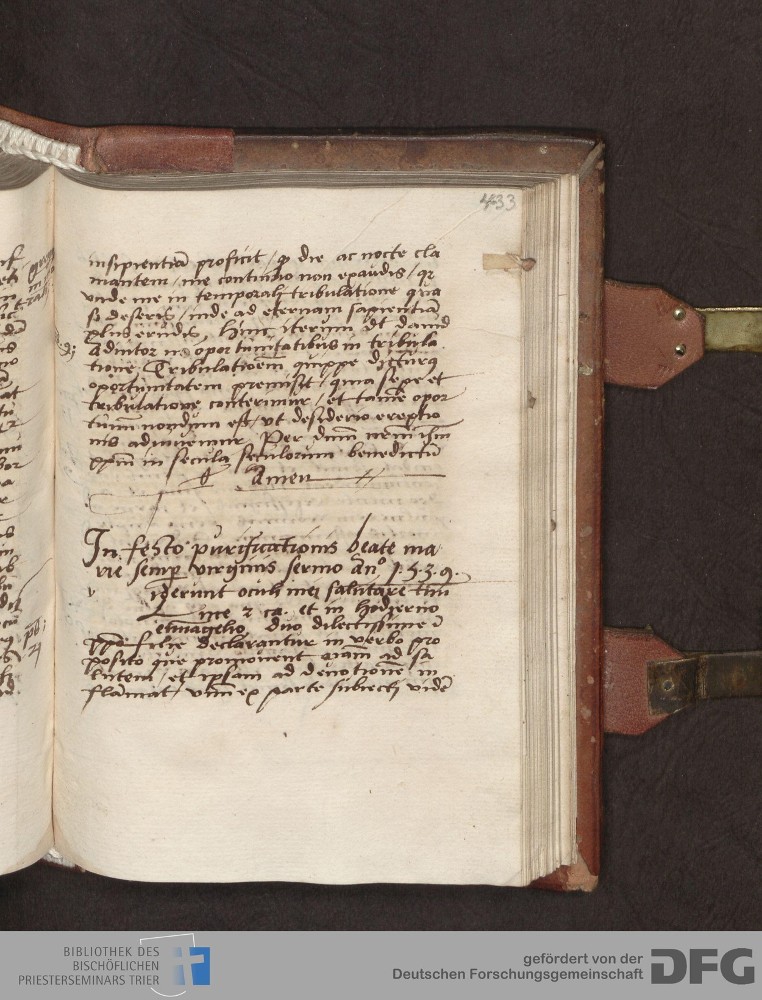 433
insipientiā proficit / qͥ die ac nocte cla
mantem / me continuo non exaudis / qꝛ
vnde me in temporali tribulatione qua
si deseris / inde ad eternam sapientiā
plus erudis, hinc iterum dt dauid
Adiutor in oportunitatibus in tribula
tione Tribulationem quippe dicturꝰ
oportunitatem premisit / quia sepe et
tribulatione conterimur / et tamē opor
tunum nondum est / vt desiderio ereptio
nis adiuuemur Per dnm nrm ihm
xpm in secula seculorum benedictū
Amen
In festo purificationis beate ma
rie semp virginis sermo anº 1539.
v
iderunt oculi mei salutare tuū
Luce 2 ca. et in hodierno
euangelio duo dilectissime ī
xpō filie declarantur in verbo pro
posito que promouent aiam ad sa
lutem / et ipsam ad deuotionē in
flāmat / vnū ex parte subiecti videt
BIBLIOTHEK DES
BISCHÖFLICHEN
PRIESTERSEMINARS TRIER
gefördert von der
Deutschen Forschungsgemeinschaft
DFG